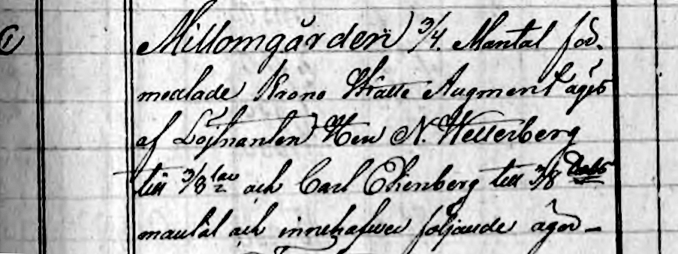 1 Millomgården 3/4. Mantal för-
medlade Krono Skatte Augment äges
af Löjtnanten Herr N. Wetterberg
till 3/8 och Carl Ehrenberg till 3/8
mantal och innehafwer följande ägor -